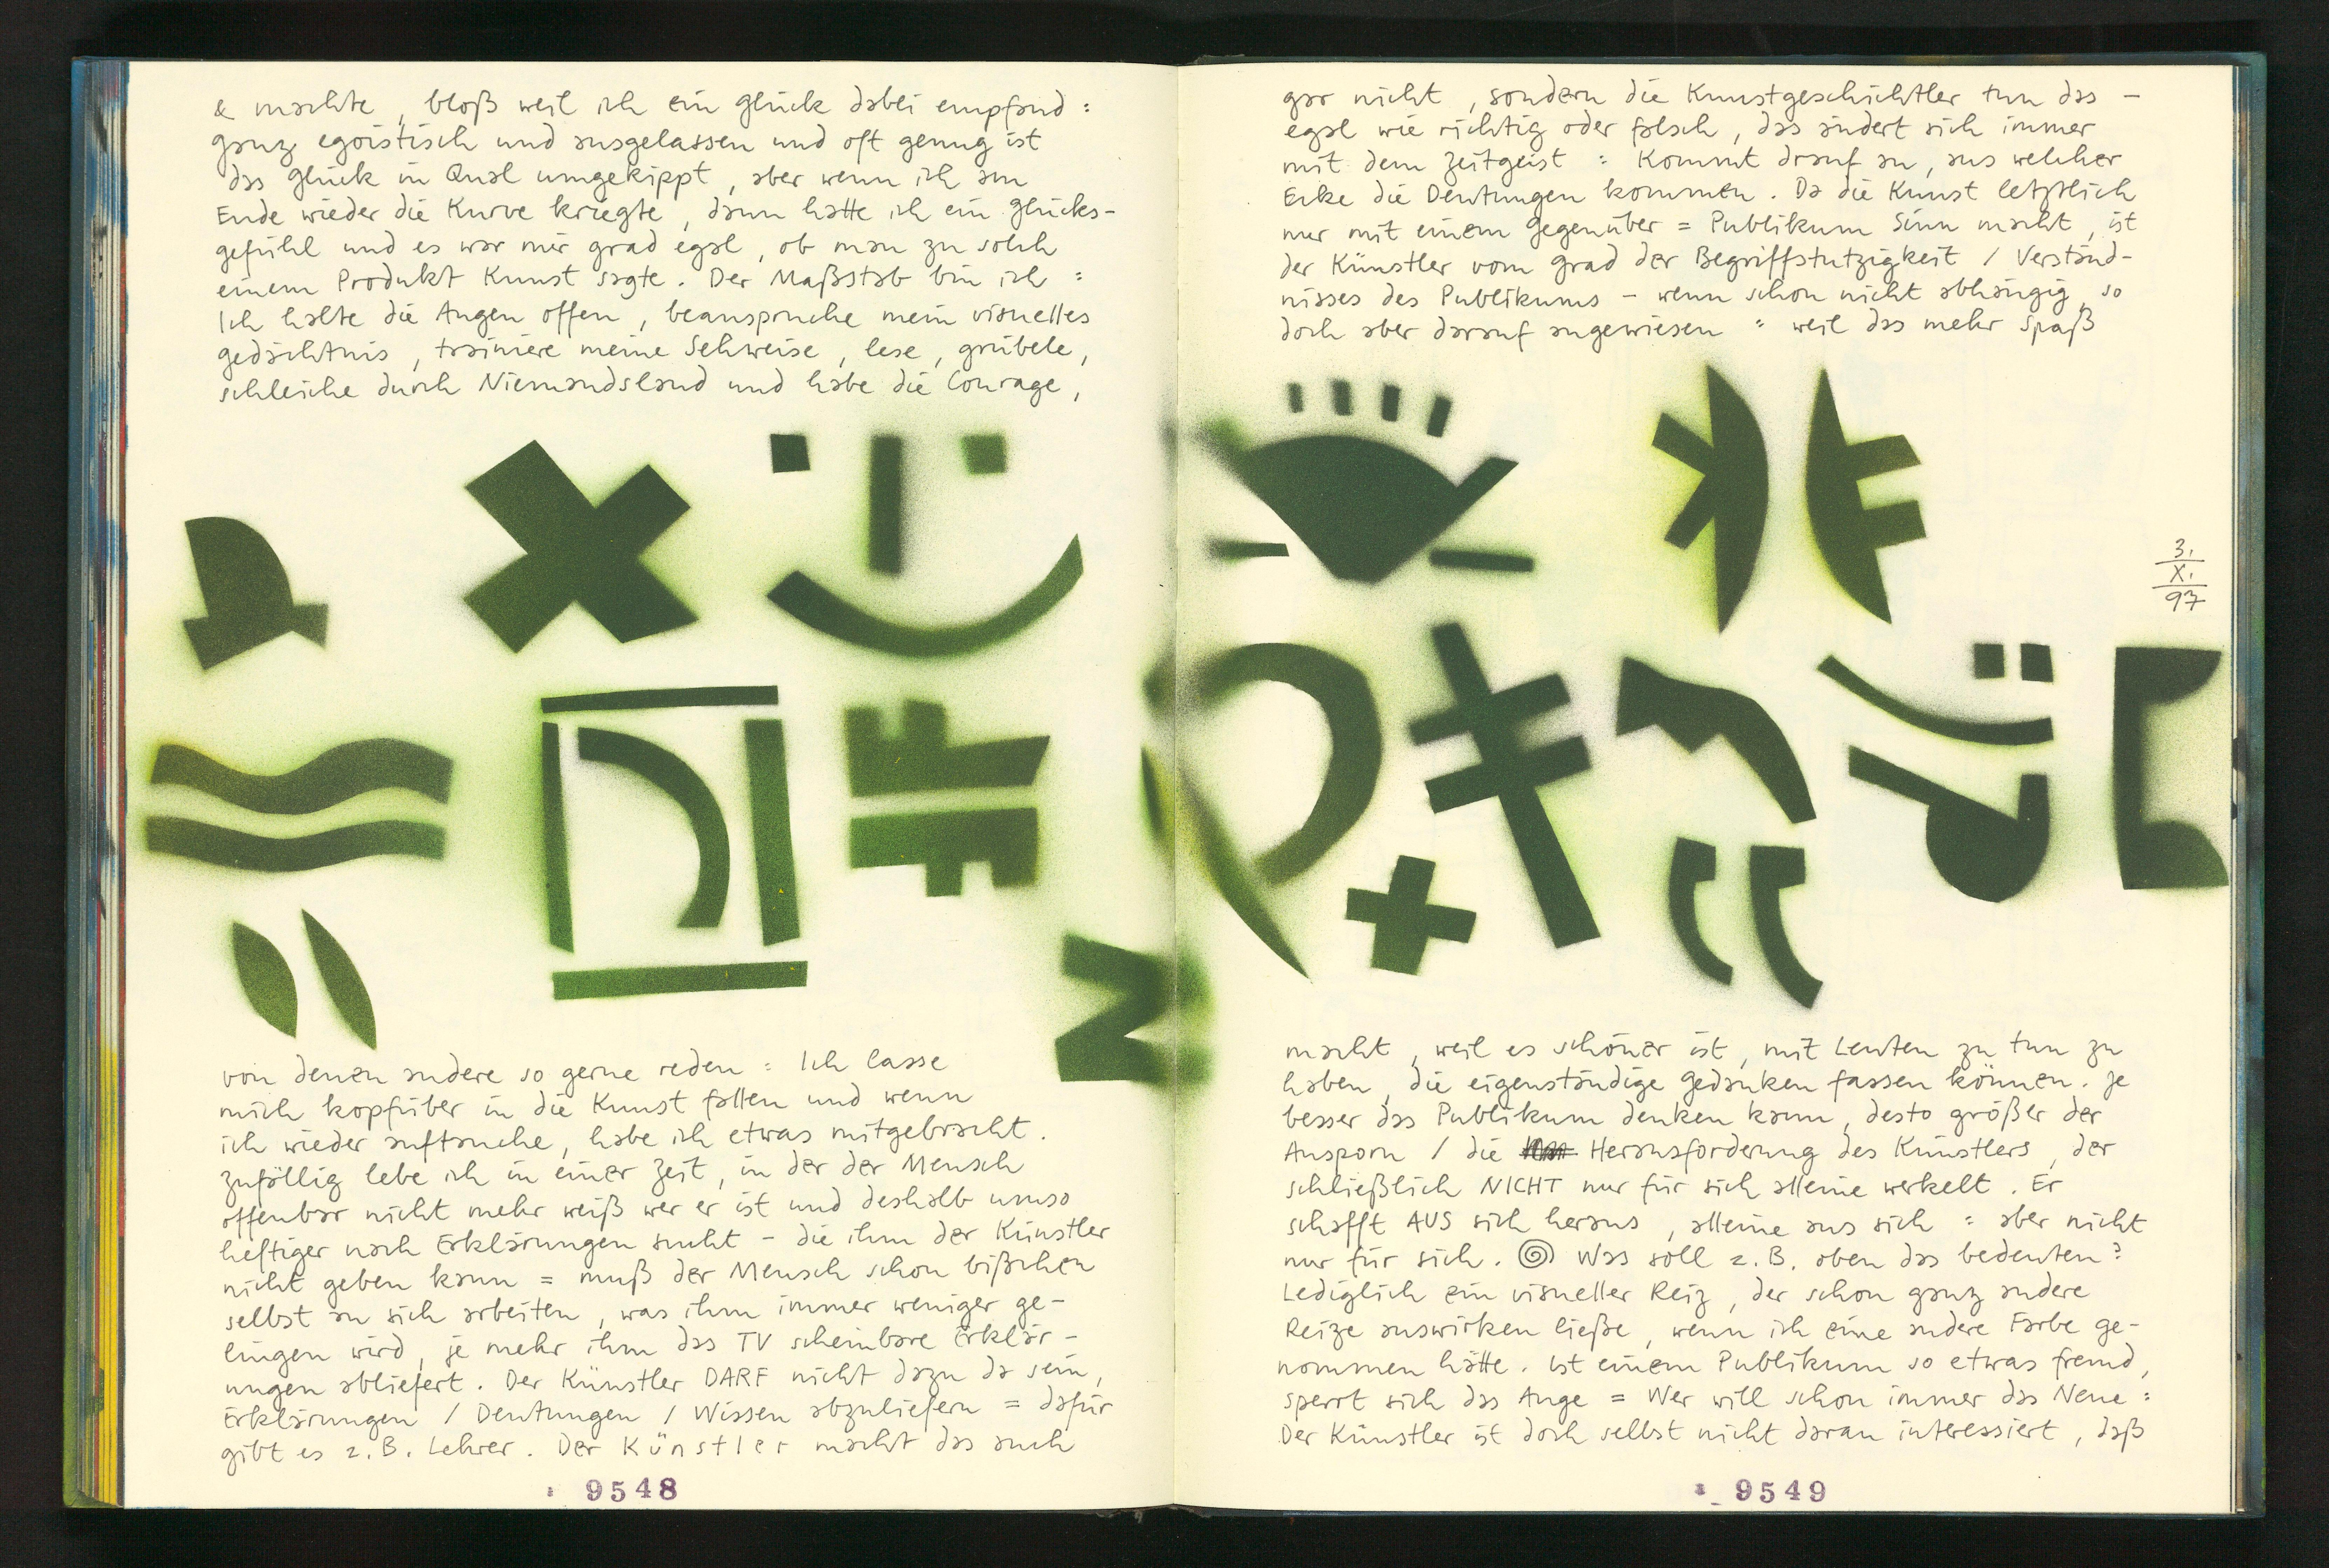 & machte, bloß weil ich ein Glück dabei empfand :
ganz egoistisch und ausgelassen und oft genug ist
das Glück in Qual umgekippt, aber wenn ich am
Ende wieder die Kurve kriegte, dann hatte ich ein Glücks-
gefühl und es war mir grad egal, ob man zu solch
einem Produkt Kunst sagte. Der Maßstab bin ich :
Ich halte die Augen offen, beanspruche mein visuelles
Gedächtnis, trainiere meine Sehweise, lese, grübele,
schleiche durch Niemandsland und habe die Courage,
von denen andere so gerne reden : Ich lasse
mich kopfüber in die Kunst fallen und wenn
ich wieder auftauche, habe ich etwas mitgebracht.
Zufällig lebe ich in einer Zeit, in der der Mensch
offenbar nicht mehr weiß wer er ist und deshalb umso
heftiger nach Erklärungen sucht – die ihm der Künstler
nicht geben kann = muß der Mensch schon bißchen
selbst an sich arbeiten, was ihm immer weniger ge-
lingen wird, je mehr ihm das TV scheinbare Erklär-
ungen abliefert. Der Künstler DARF nicht dazu da sein,
Erklärungen / Deutungen / Wissen abzuliefern = dafür
gibt es z.B. Lehrer. Der Künstler macht das auch
9548
gar nicht, sondern die Kunstgeschichtler tun das –
egal wie richtig oder falsch, das ändert sich immer
mit dem Zeitgeist : Kommt drauf an, aus welcher
Ecke die Deutungen kommen. Da die Kunst letztlich
nur mit einem Gegenüber = Publikum Sinn macht, ist
der Künstler vom Grad der Begriffstutzigkeit / Verständ-
nisses des Publikums – wenn schon nicht abhängig, so
doch aber darauf angewiesen : weil das mehr Spaß
3.
X.
97
macht, weil es schöner ist, mit Leuten zu tun zu
haben, die eigenständige Gedanken fassen können. Je
besser das Publikum denken kann, desto größer der
Ansporn / die Herausforderung des Künstlers, der
schließlich NICHT nur für sich alleine werkelt. Er
schafft AUS sich heraus, alleine aus sich : aber nicht
nur für sich. Was soll z.B. oben das bedeuten?
Lediglich ein visueller Reiz, der schon ganz andere
Reize auswirken ließe, wenn ich eine andere Farbe ge-
nommen hätte. Ist einem Publikum so etwas fremd,
sperrt sich das Auge = Wer will schon immer das Neue :
Der Künstler ist doch selbst nicht daran interessiert, daß
9549